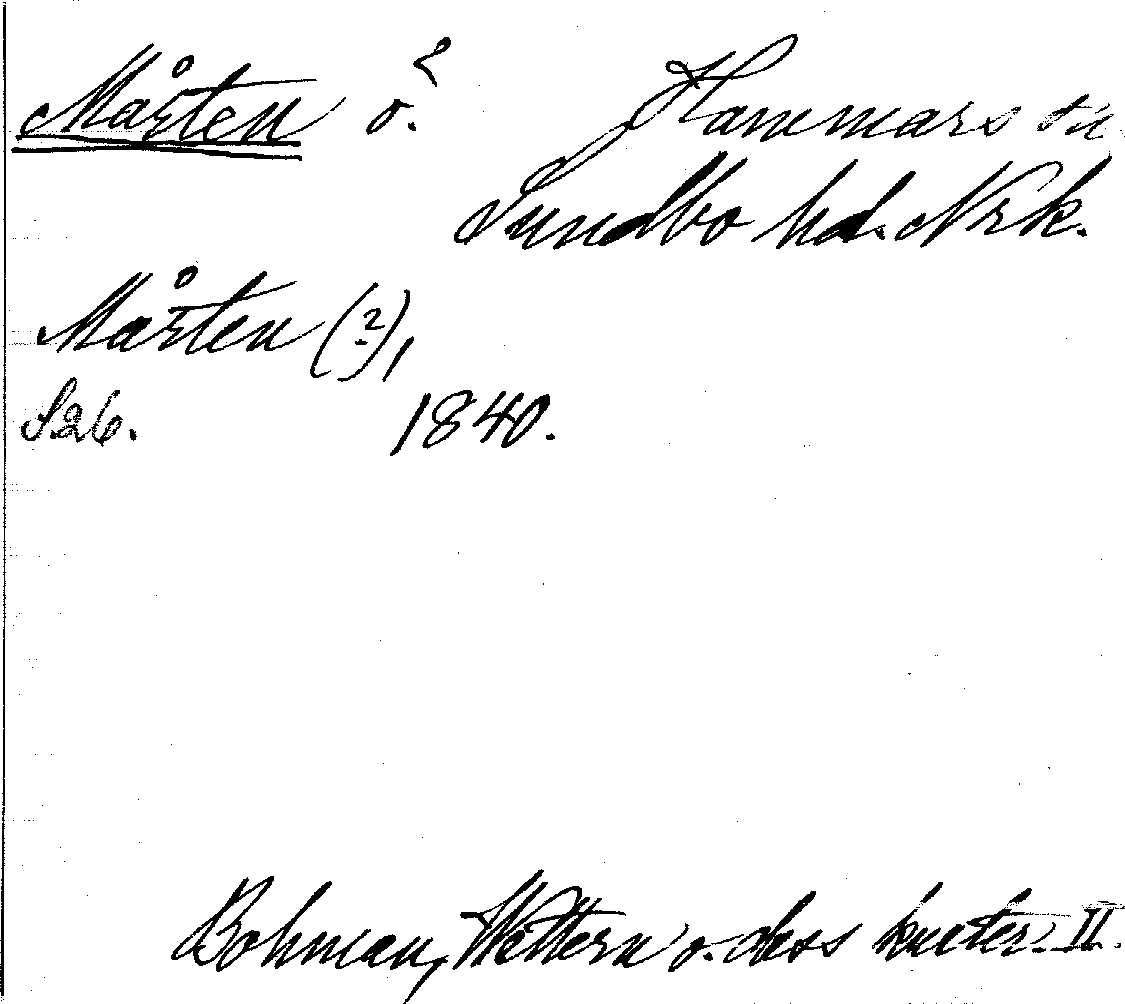 Mårten ö.? Hammars sn
Sundbo hd. Nrk.
Mårten (?),
S26. 1840.
Bohman, Wettern o. dess kuster. II.